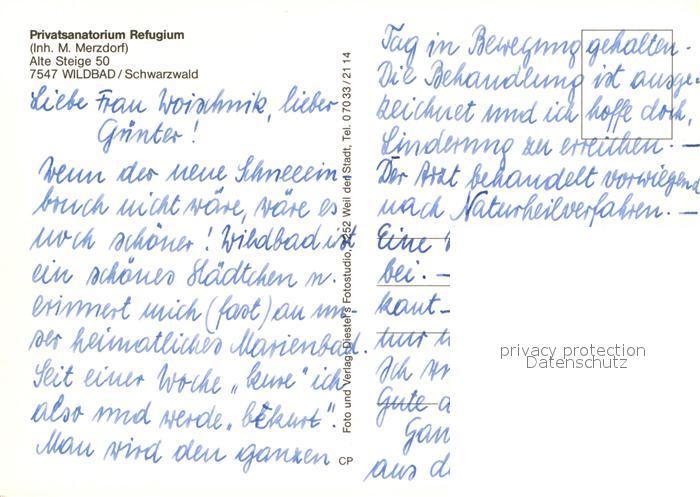 Privatsanatorium Refugium
(Inh. M. Merzdorf)
Alte Steige 50
7547 WILDBAD / Schwarzwald
Liebe Frau Woischnik, lieber
Günter!
Wenn der neue Schneeein-
bruch nicht wäre, wäre es
noch schöner! Wildbad ist
ein schönes Städtchen u.
erinnert mich (fast) an un-
ser heimatliches Marienbad.
Seit einer Woche „kure" ich
also und werde „bekurt".
Man wird den ganzen
Foto und Verlag: Diester's Fotostudio, 7252 Weil der Stadt, Tel. 0 70 33 / 21 14
CP
Tag in Bewegung gehalten.
Die Behandlung ist ausge-
zeichnet und ich hoffe doch,
Linderung zu erreichen. —
Der Arzt behandelt vorwiegend
nach Naturheilverfahren. —
Eine
bei. —
kant-
nur
Ich
Gute
Gan
aus
privacy protection
Datenschutz